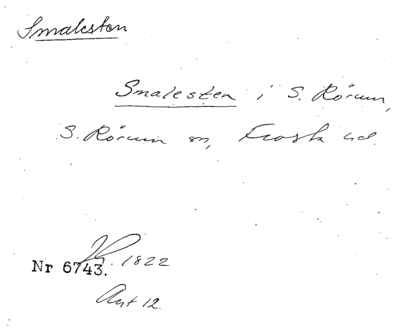 Smalesten
Smalesten i S. Rörum,
S. Rörum sn, Frosta hd.
Nr 6743. 1822
Art 12.